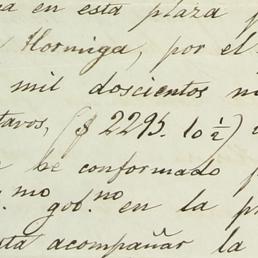 en esta plaza
Hormiga, por el
mil doscientos
tavos, ($ 2295. 10 ½)
se conformado
mo gob.no en la
acompañar la